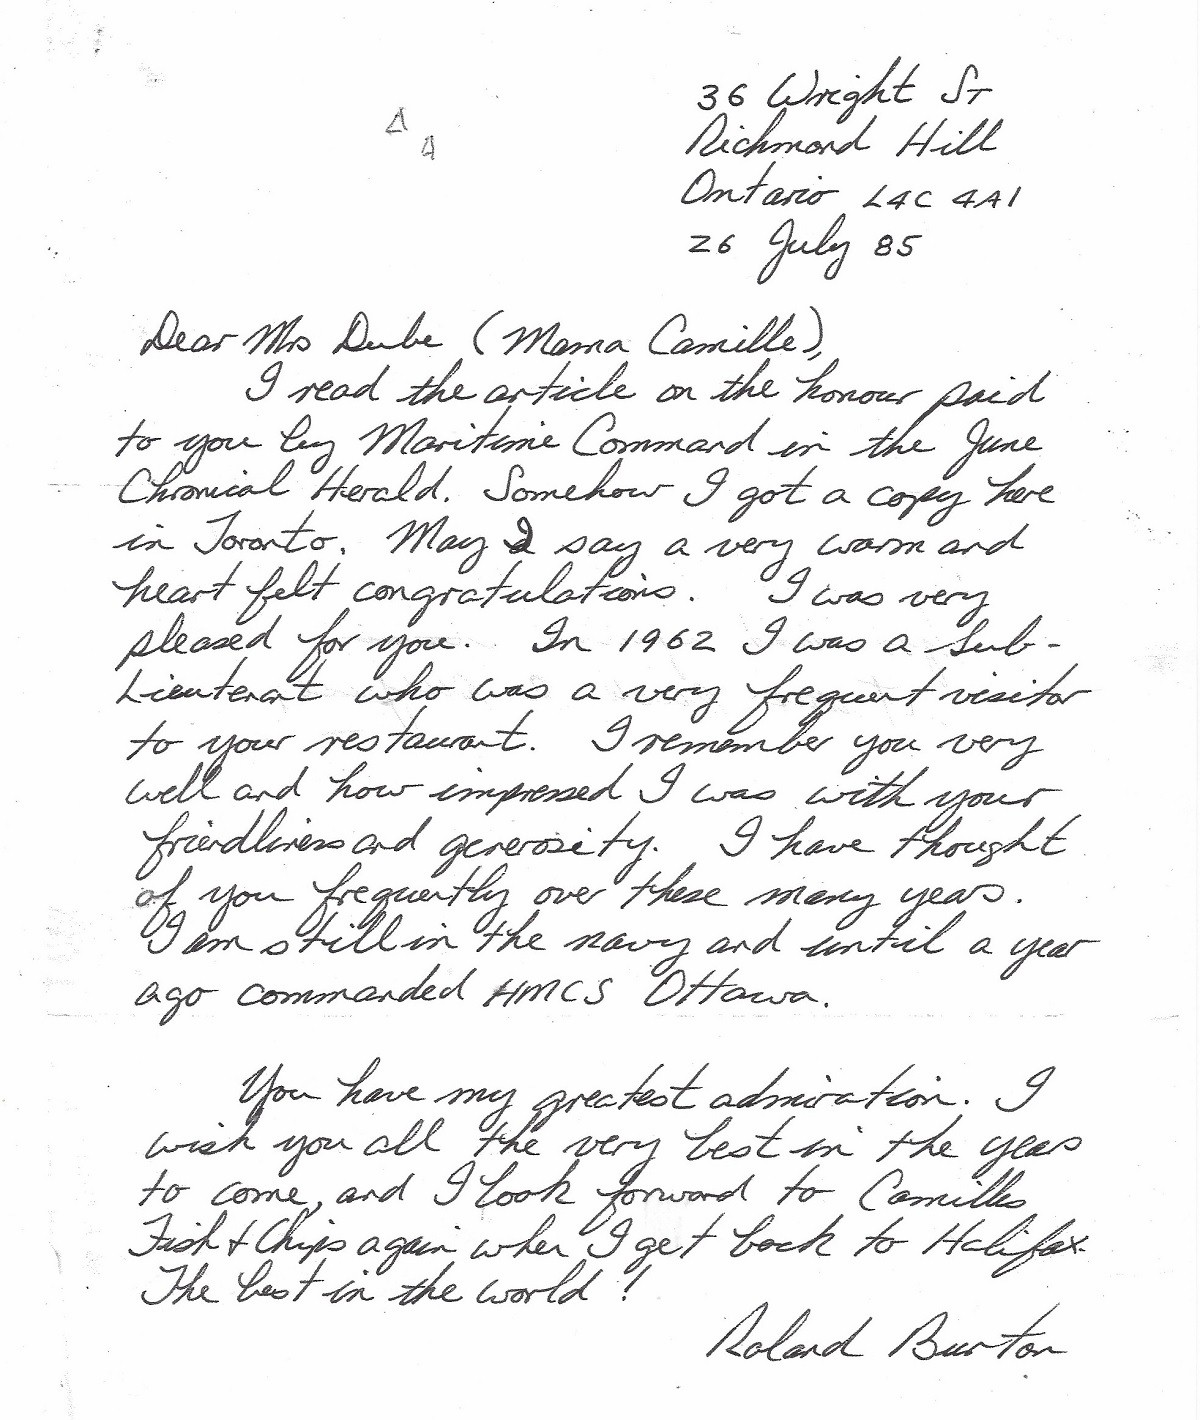 36 Wright St
Richmond Hill
Ontario L4C 4A1
26 July 85
Dear Mrs Dube (Mama Camille),
I read the article on the honour paid
to you by Maritime Command in the June
Chronical Herald. Somehow I got a copy here
in Toronto. May I say a very warm and
heart felt congratulations. I was very
pleased for you. In 1962 I was a Sub-
Lieutenant who was a very frequent visitor
to your restaurant. I remember you very
well and how impressed I was with your
friendliness and generosity. I have thought
of you frequently over these many years.
I am still in the navy and until a year
ago commanded HMCS Ottawa.
You have my greatest admiration. I
wish you all the very best in the years
to come, and I look forward to Camilles
Fish & Chips again when I get back to Halifax.
The best in the world!
Roland Burton